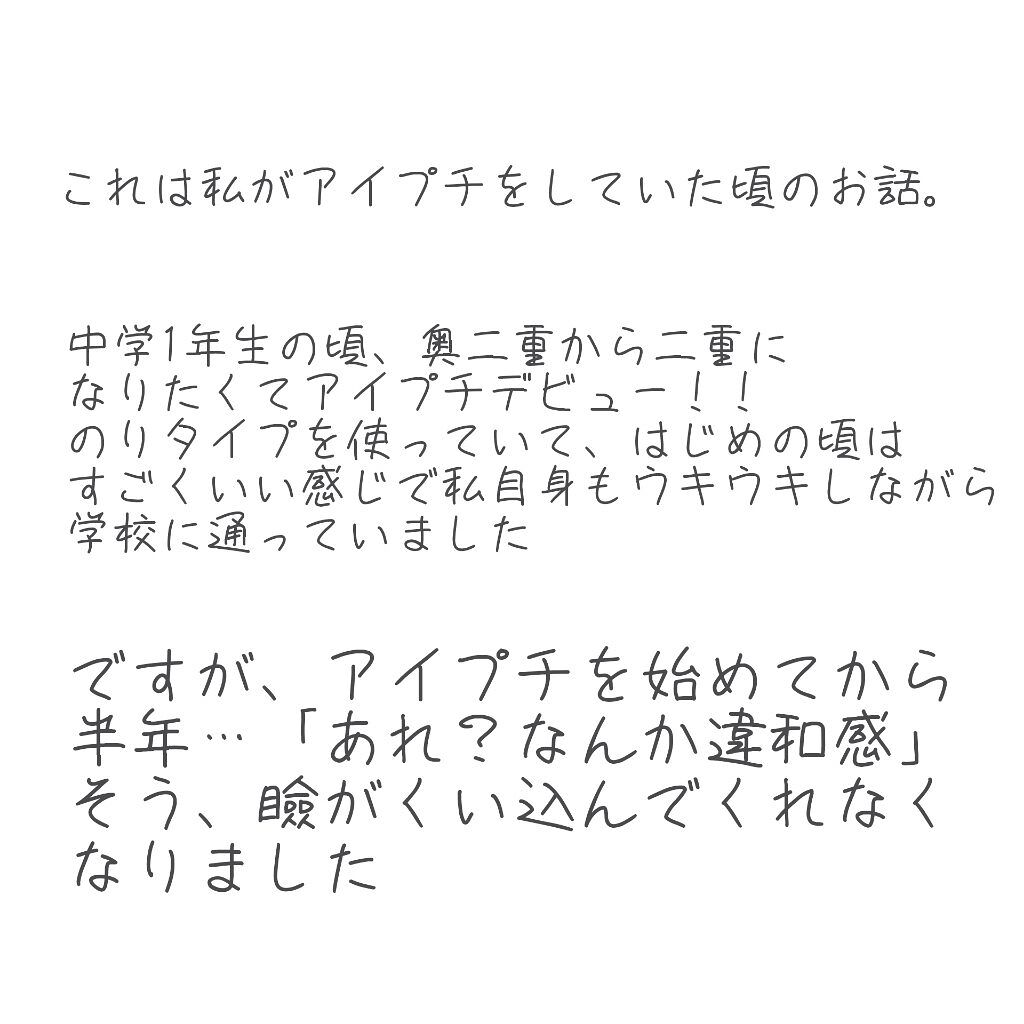 これは私がアイプチをしていた頃のお話。
中学1年生の頃、奥二重から二重に
なりたくてアイプチデビュー！！
のりタイプを使っていて、はじめの頃は
すごくいい感じで私自身もウキウキしながら
学校に通っていました
ですが、アイプチを始めてから
半年…「あれ？なんか違和感」
そう、瞼がくい込んでくれなく
なりました